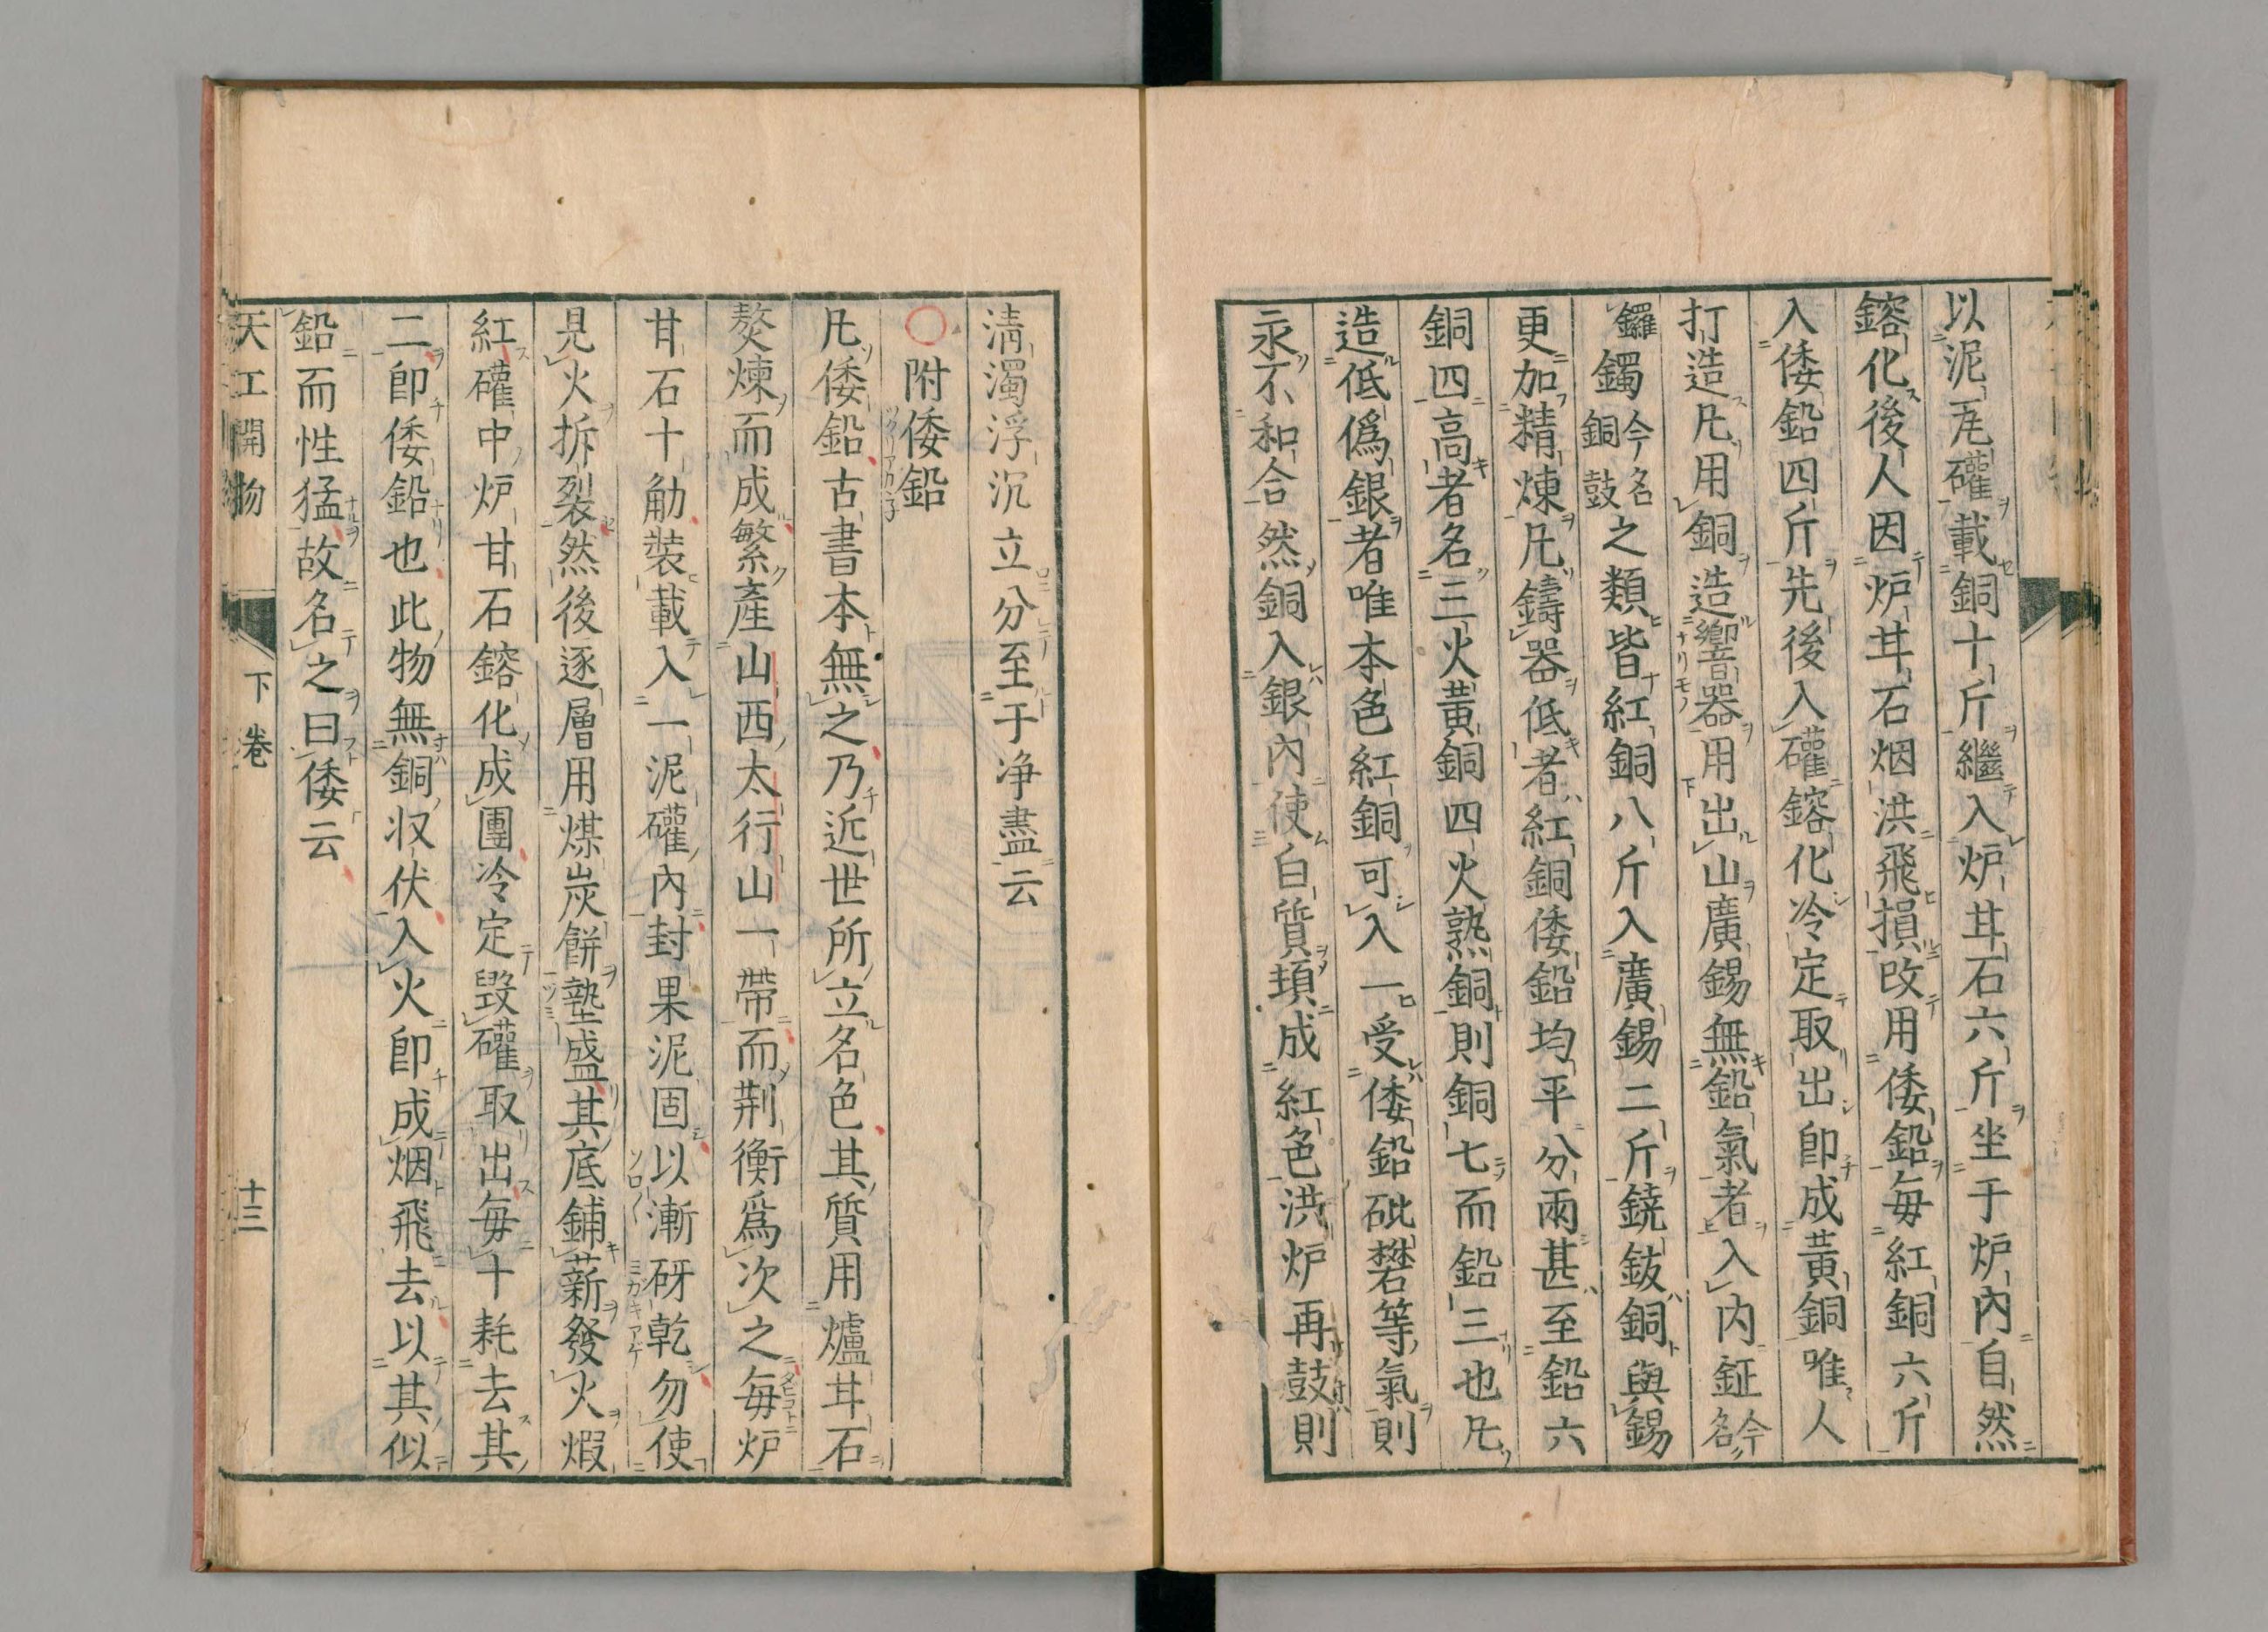 以泥瓦礶載銅十斤繼入炉甘石六斤坐于炉內自然
鎔化後人因炉甘石烟洪飛損改用倭鉛每紅銅六斤
入倭鉛四斤先後入礶鎔化冷定取出即成黃銅唯人
打造凡用銅造響器用出山廣錫無鉛氣者入內鉦今名
鑼鐲今名銅鼓之類皆紅銅八斤入廣錫二斤鐃鈸銅與錫
更加精煉凡鑄器低者紅銅倭鉛均平分兩甚至鉛六
銅四高者名三火黃銅四火熟銅則銅七而鉛三也凡
造低偽銀者唯本色紅銅可入一受倭鉛砒礬等氣則
永不和合然銅入銀內使白質頓成紅色洪炉再鼓則
清濁浮沉立分至于净盡云
〇附倭鉛
凡倭鉛古書本無之乃近世所立名色其質用爐甘石
熬煉而成繁產山西太行山一帶而荆衡爲次之每炉
甘石十觔裝載入一泥礶內封果泥固以漸砑乾勿使
見火拆裂然後逐層用煤炭餅墊盛其底鋪薪發火煆
紅礶中炉甘石鎔化成團冷定毀礶取出每十耗去其
二即倭鉛也此物無銅収伏入火即成烟飛去以其似
鉛而性猛故名之曰倭云
天工開物　下卷　十三